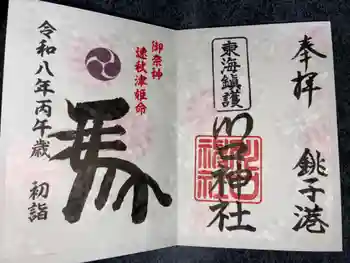 奉拝
銚子港
東海鎮護
川口神社
御祭神
速秋津姫命
馬
令和八年丙午歳
初詣